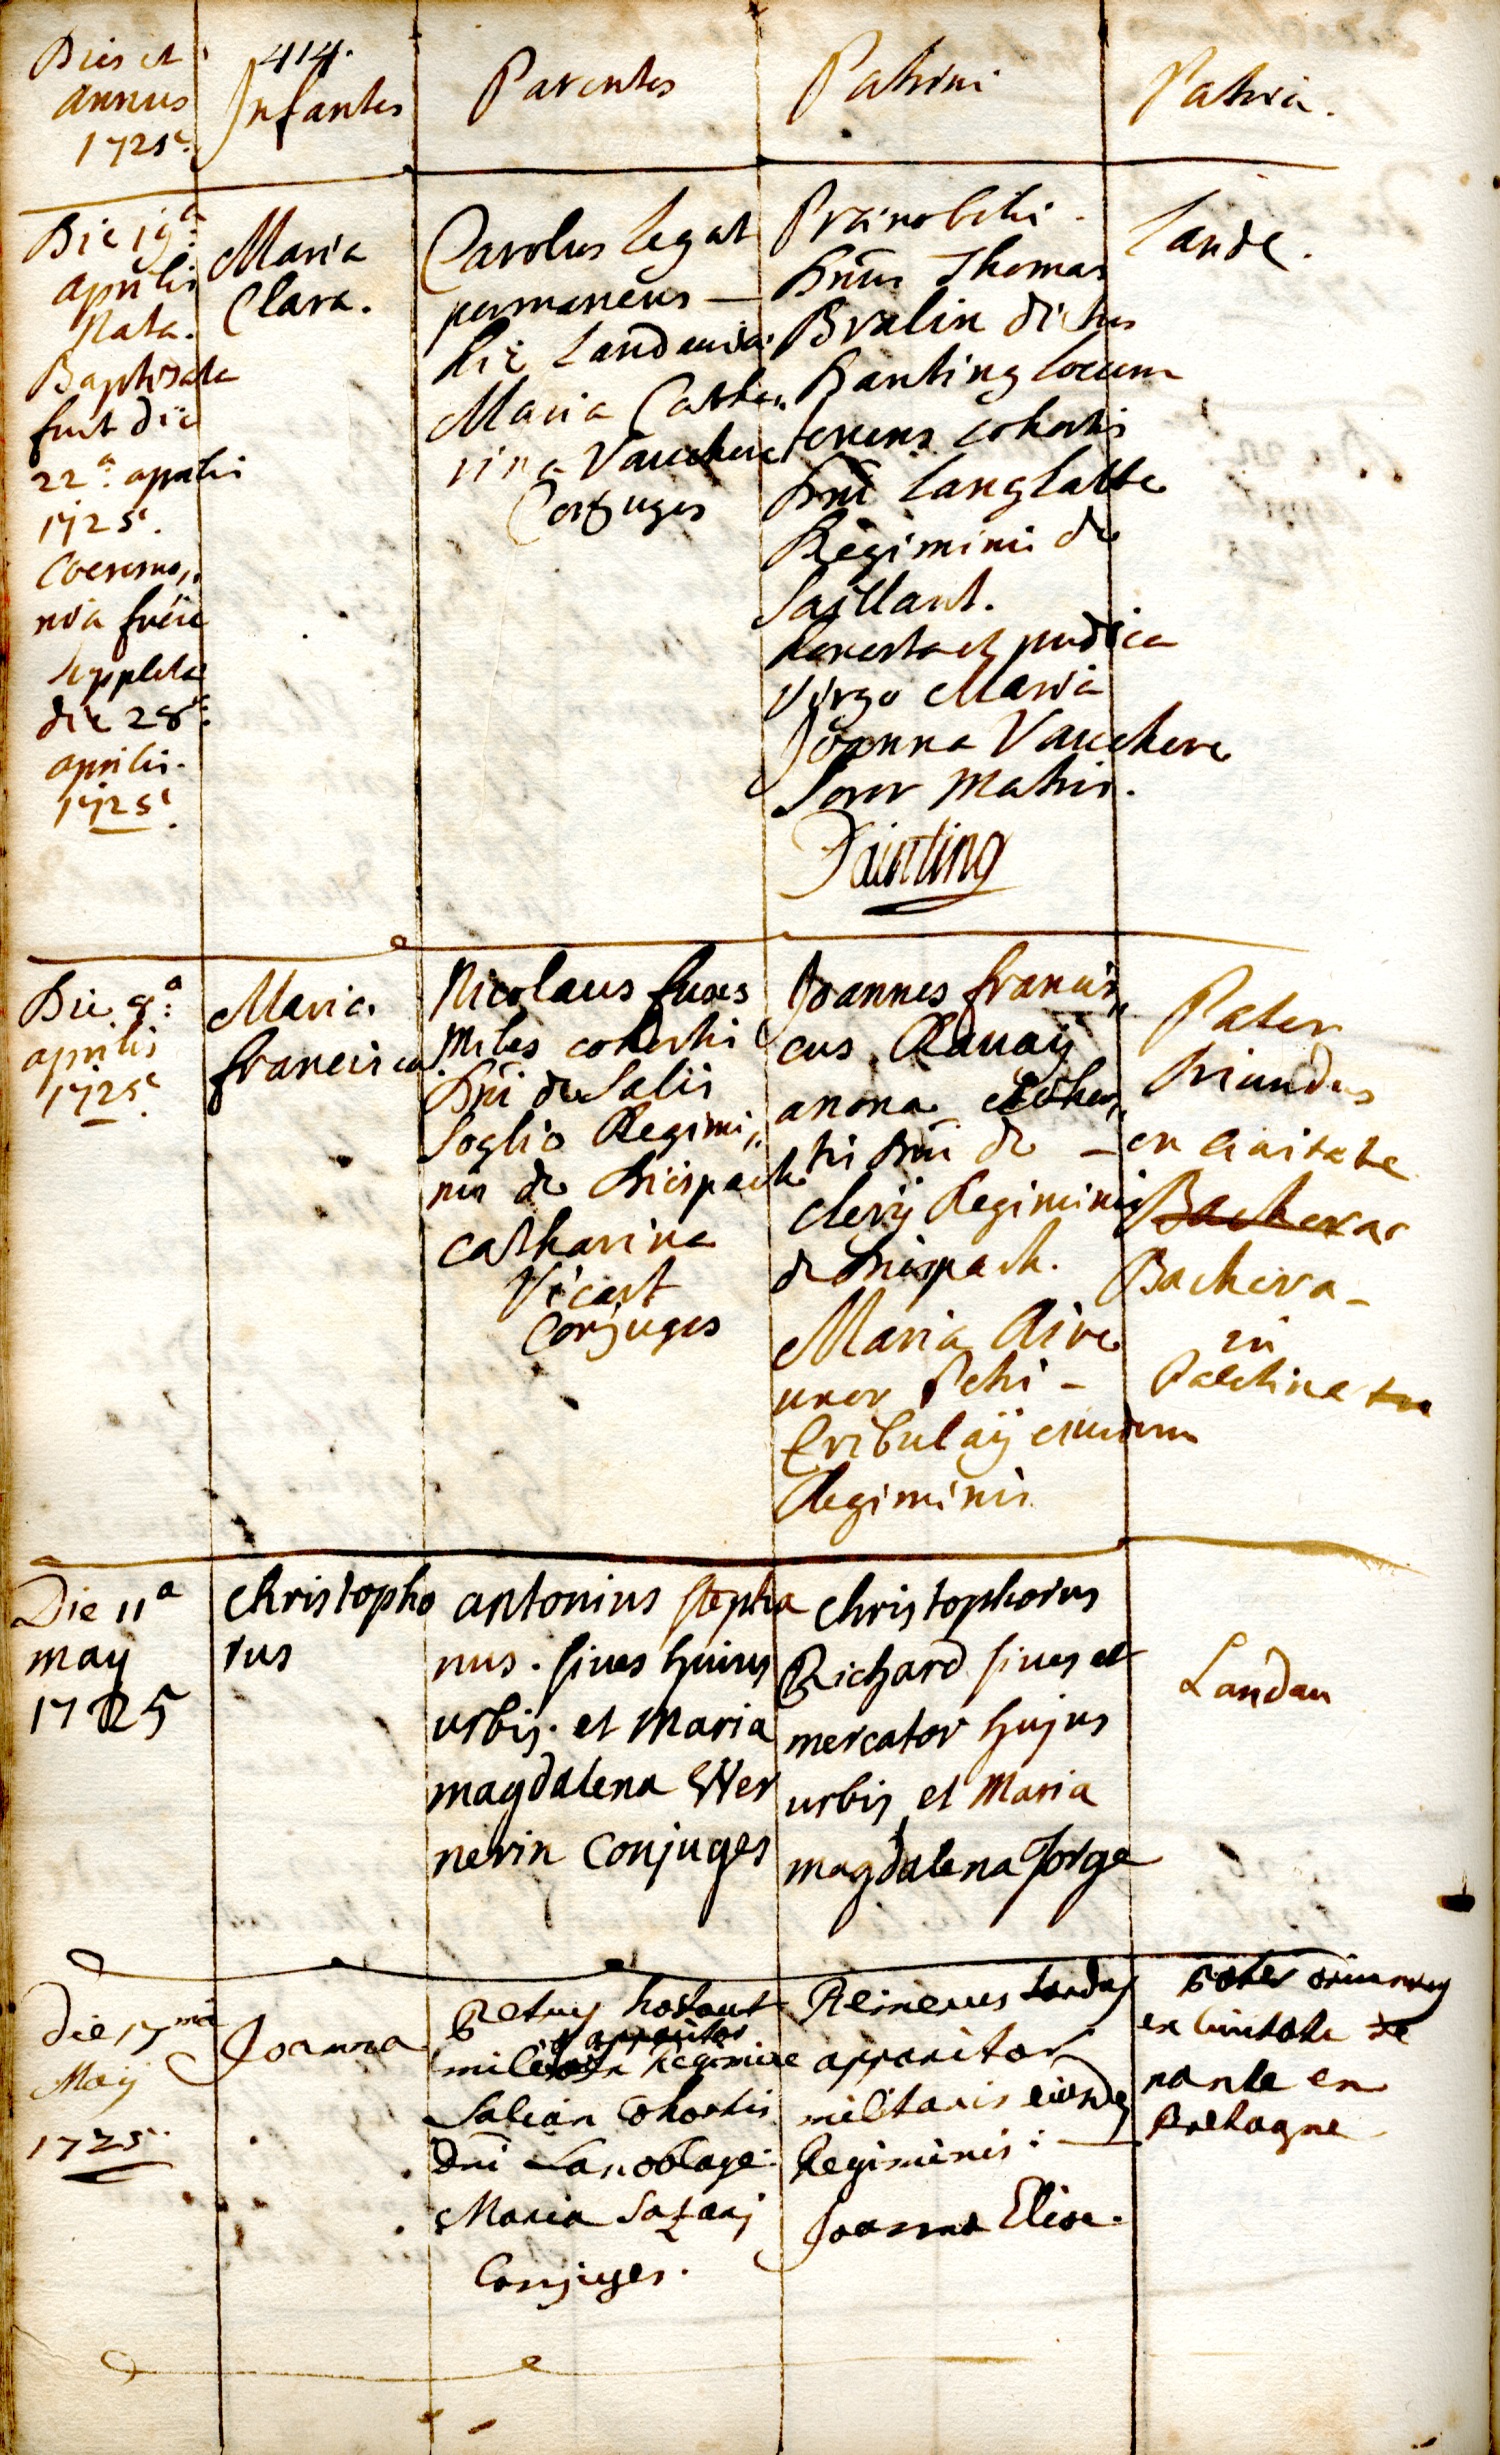 414.
Dies et
annus
1725.
Infantes
Parentes
Patrini
Patria.
Die 19a:
aprilis
Nata.
Baptisata
fuit die
22a: aprilis
1725.
Coeremo,,
nia
suppleta
die 28a:
aprilis.
1725.
Maria
Clara.
Carolus Legat
permanens —
hic Landaviae.
Maria Catha,,
rina Vauchere
Conjuges
Praenobilis
Dnus Thomas
Bralin dictus
Banting locum
tenens cohortis
Dni Langlatte
Regiminis de
Saillant.
honesta et pudica
Virgo Maria
Joanna Vauchere
Soror Matris.
Bainting
Lande.
Die 9a:
aprilis
1725.
Maria
francisca.
Nicolaus
Miles cohortis
Dni de Salis
Soglio Regimi,,
nis de
catharina
Vicast
Conjuges
Joannes francis,,
cus Rauaÿ
anona cohor,,
tis Dni de —
clerÿ Regiminis
de
Maria Aive
uxor Petri —
Cribulaÿ eiusdem
Regiminis
Pater
oriundus
ex civitate
Bacherac
Bachera —
in
Palatina
Die 11a
may
1725
Christopho
rus
antonius stepha
nus. sives hujus
urbis. et Maria
magdalena Wer
nerin conjuges
Christophorus
Richard sives et
mercator hujus
urbis et Maria
magdalena Jorge
Landau
die 17ma
Maÿ
1725.
Joanna
Petrus
apparitor
Regimine
Salian Cohortis
Dni
Maria
Conjuges.
Reinerus
apparitor
militaris eiusdem
Regiminis: —
Joanna Elise.
Pater oriundus
ex Civitate de
nante en
Bretagne